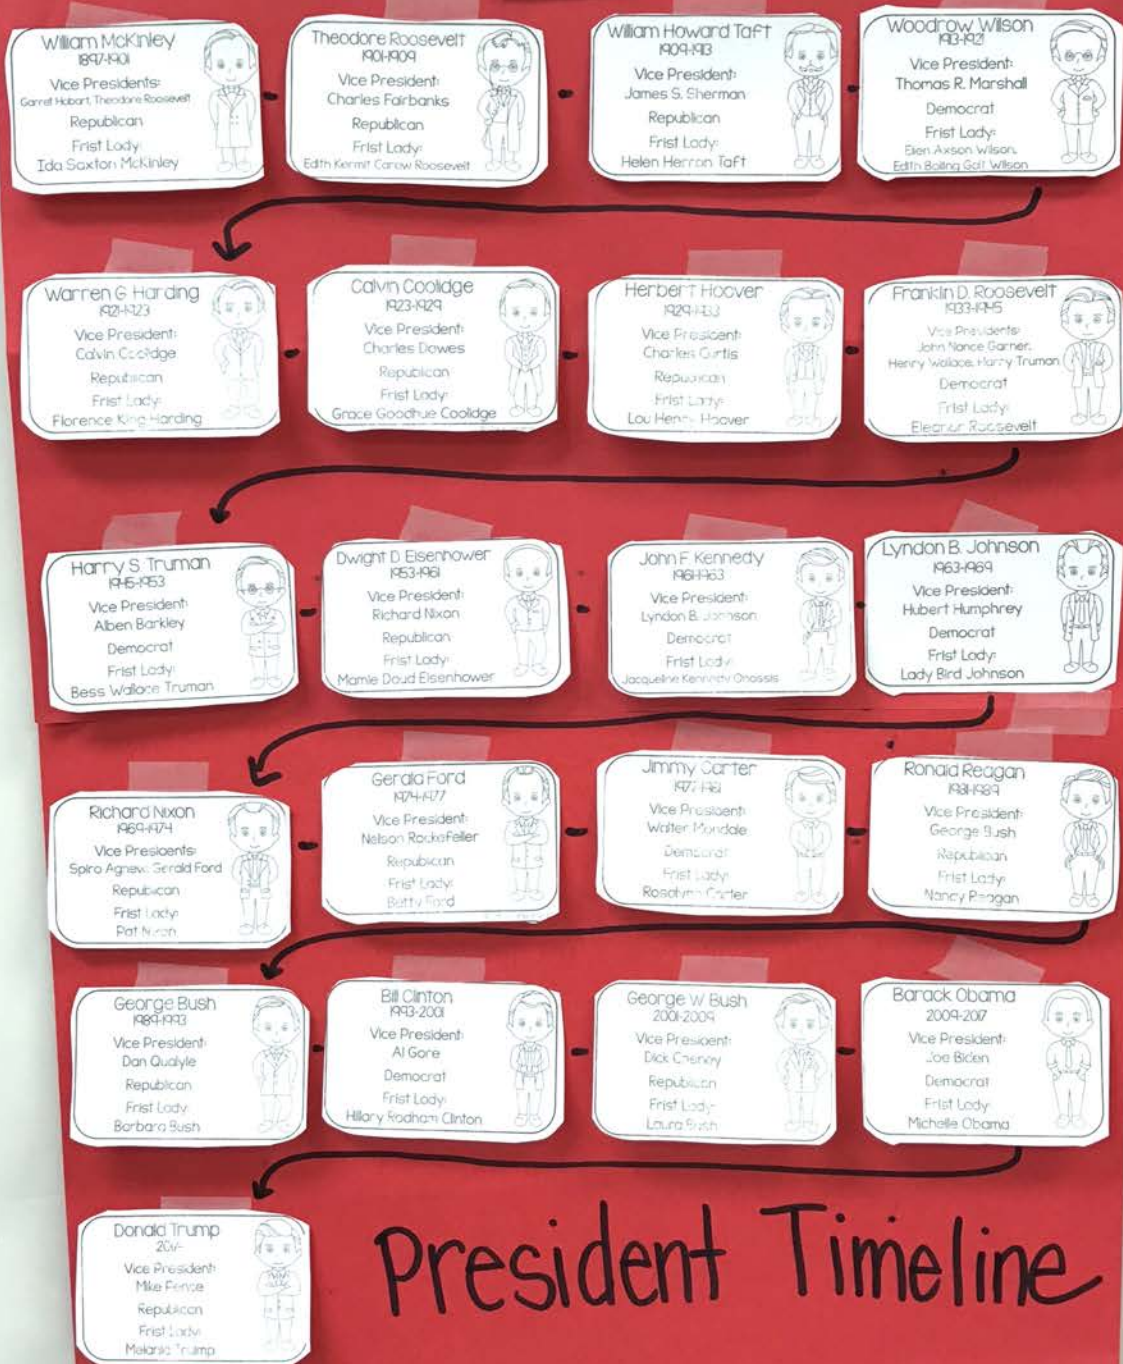 William McKinley
1897-1901
Vice Presidents:
Garret Hobart, Theodore Roosevelt
Republican
Frist Lady:
Ida Saxton McKinley
Theodore Roosevelt
1901-1909
Vice President:
Charles Fairbanks
Republican
Frist Lady:
Edith Kermit Carow Roosevelt
William Howard Taft
1909-1913
Vice President:
James S. Sherman
Republican
Frist Lady:
Helen Herron Taft
Woodrow Wilson
1913-1921
Vice President:
Thomas R. Marshall
Democrat
Frist Lady:
Ellen Axson Wilson,
Edith Bolling Galt Wilson
Warren G Harding
1921-1923
Vice President:
Calvin Coolidge
Republican
Frist Lady:
Florence King Harding
Calvin Coolidge
1923-1929
Vice President:
Charles Dawes
Republican
Frist Lady:
Grace Goodhue Coolidge
Herbert Hoover
1929-1933
Vice President:
Charles Curtis
Republican
Frist Lady:
Lou Henry Hoover
Franklin D. Roosevelt
1933-1945
Vice Presidents:
John Nance Garner,
Henry Wallace, Harry Truman
Democrat
Frist Lady:
Eleanor Roosevelt
Harry S. Truman
1945-1953
Vice President:
Alben Barkley
Democrat
Frist Lady:
Bess Wallace Truman
Dwight D. Eisenhower
1953-1961
Vice President:
Richard Nixon
Republican
Frist Lady:
Mamie Doud Eisenhower
John F. Kennedy
1961-1963
Vice President:
Lyndon B. Johnson
Democrat
Frist Lady:
Jacqueline Kennedy Onassis
Lyndon B. Johnson
1963-1969
Vice President:
Hubert Humphrey
Democrat
Frist Lady:
Lady Bird Johnson
Richard Nixon
1969-1974
Vice Presidents:
Spiro Agnew, Gerald Ford
Republican
Frist Lady:
Pat Nixon
Gerald Ford
1974-1977
Vice President:
Nelson Rockefeller
Republican
Frist Lady:
Betty Ford
Jimmy Carter
1977-1981
Vice President:
Walter Mondale
Democrat
Frist Lady:
Rosalynn Carter
Ronald Reagan
1981-1989
Vice President:
George Bush
Republican
Frist Lady:
Nancy Reagan
George Bush
1989-1993
Vice President:
Dan Qualyle
Republican
Frist Lady:
Barbara Bush
Bill Clinton
1993-2001
Vice President:
Al Gore
Democrat
Frist Lady:
Hillary Rodham Clinton
George W Bush
2001-2009
Vice President:
Dick Cheney
Republican
Frist Lady:
Laura Bush
Barack Obama
2009-2017
Vice President:
Joe Biden
Democrat
Frist Lady:
Michelle Obama
Donald Trump
2017-
Vice President:
Mike Pence
Republican
Frist Lady:
Melania Trump
President Timeline